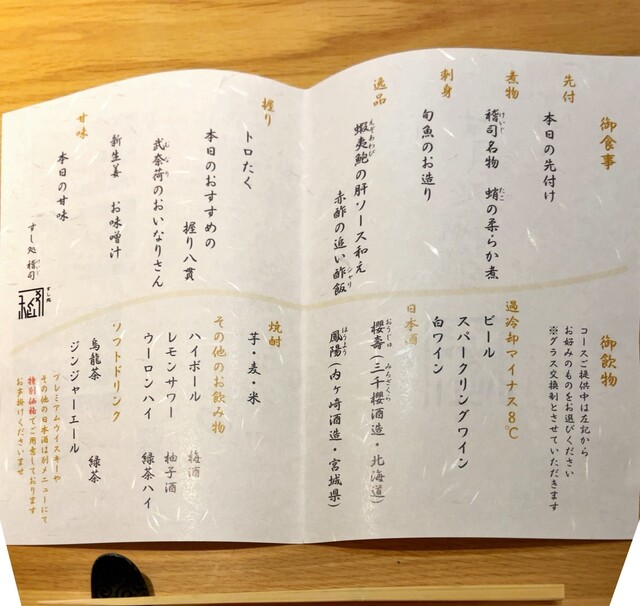 御食事
先付
本日の先付け
煮物
稽司名物 蛸の柔らか煮
刺身
旬魚のお造り
逸品
蝦夷鮑の肝ソース和え
赤酢の追い酢飯
握り
トロたく
本日のおすすめの
握り八貫
武奈荷のおいなりさん
新生姜 お味噌汁
甘味
本日の甘味
すし処 稽司
御飲物
コースご提供中は左記から
お好みのものをお選びください
※グラス交換制とさせていただきます
過冷却マイナス8℃
ビール
スパークリングワイン
白ワイン
日本酒
櫻壽(三千櫻酒造・北海道)
鳳陽(内ヶ崎酒造・宮城県)
焼酎
芋・麦・米
その他のお飲み物
ハイボール 梅酒
レモンサワー 柚子酒
ウーロンハイ 緑茶ハイ
ソフトドリンク
烏龍茶 緑茶
ジンジャーエール
プレミアムウイスキーや
その他の日本酒は別メニューにて
特別価格でご用意しております
お声掛けくださいませ